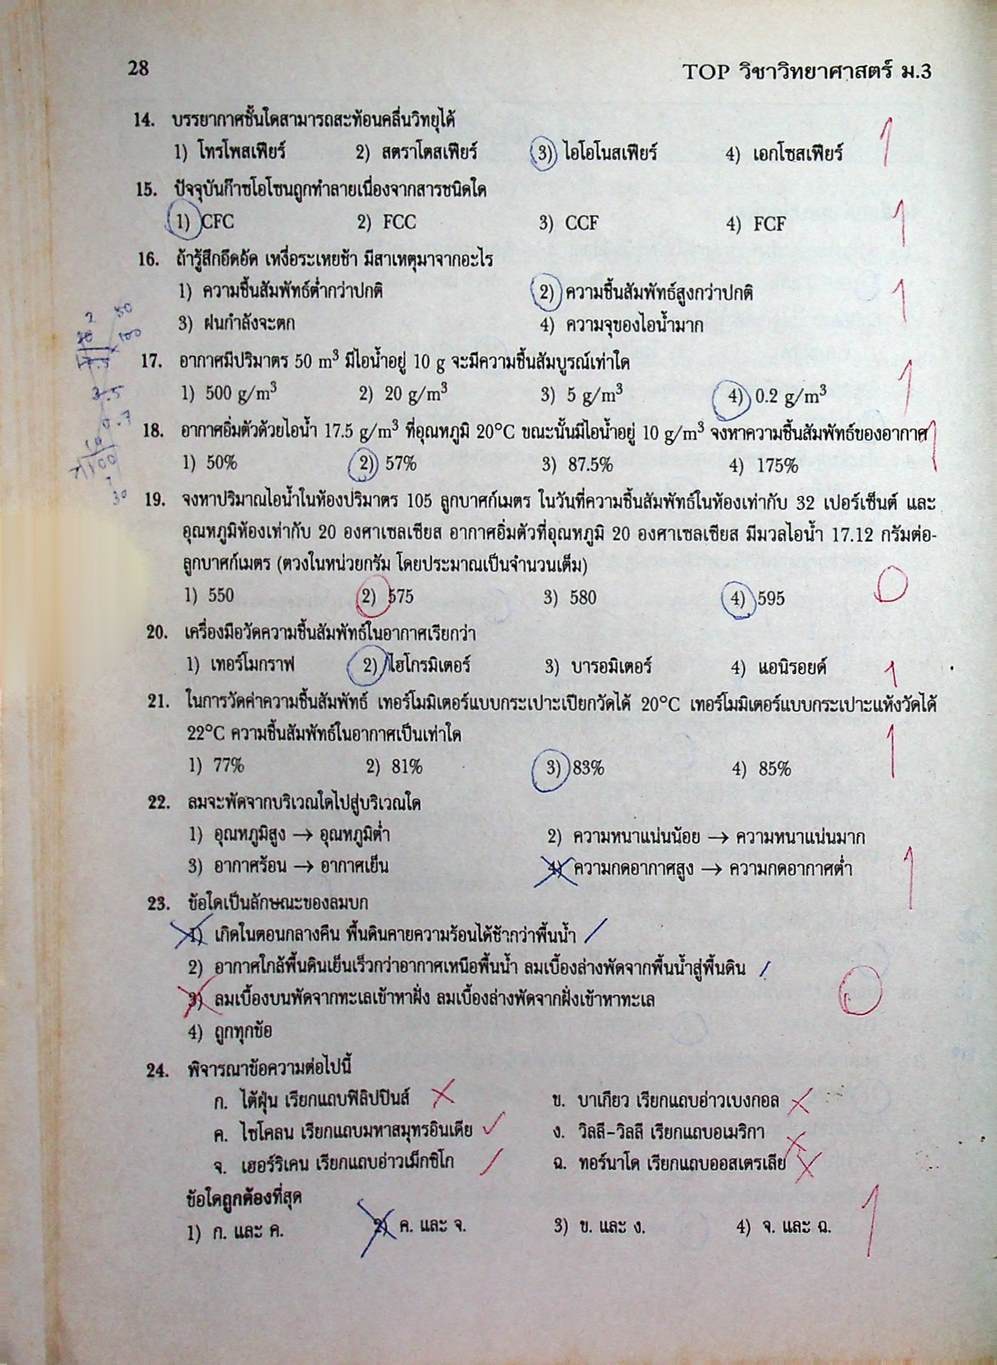 28
TOP วิชาวิทยาศาสตร์ ม.3
14. บรรยากาศชั้นใดสามารถสะท้อนคลื่นวิทยุได้
1) โทรโพสเฟียร์ 2) สตราโตสเฟียร์ 3) ไอโอโนสเฟียร์ 4) เอกโซสเฟียร์
15. ปัจจุบันก๊าซโอโซนถูกทำลายเนื่องจากสารชนิดใด
1) CFC 2) FCC 3) CCF 4) FCF
16. ถ้ารู้สึกอึดอัด เหงื่อระเหยช้า มีสาเหตุมาจากอะไร
1) ความชื้นสัมพัทธ์ต่ำกว่าปกติ 2) ความชื้นสัมพัทธ์สูงกว่าปกติ
3) ฝนกำลังจะตก 4) ความจุของไอน้ำมาก
17. อากาศมีปริมาตร 50 m³ มีไอน้ำอยู่ 10 g จะมีความชื้นสัมบูรณ์เท่าใด
1) 500 g/m³ 2) 20 g/m³ 3) 5 g/m³ 4) 0.2 g/m³
18. อากาศอิ่มตัวด้วยไอน้ำ 17.5 g/m³ ที่อุณหภูมิ 20°C ขณะนั้นมีไอน้ำอยู่ 10 g/m³ จงหาความชื้นสัมพัทธ์ของอากาศ
1) 50% 2) 57% 3) 87.5% 4) 175%
19. จงหาปริมาณไอน้ำในห้องปริมาตร 105 ลูกบาศก์เมตร ในวันที่ความชื้นสัมพัทธ์ในห้องเท่ากับ 32 เปอร์เซ็นต์ และ
อุณหภูมิห้องเท่ากับ 20 องศาเซลเซียส อากาศอิ่มตัวที่อุณหภูมิ 20 องศาเซลเซียส มีมวลไอน้ำ 17.12 กรัมต่อ-
ลูกบาศก์เมตร (ตวงในหน่วยกรัม โดยประมาณเป็นจำนวนเต็ม)
1) 550 2) 575 3) 580 4) 595
20. เครื่องมือวัดความชื้นสัมพัทธ์ในอากาศเรียกว่า
1) เทอร์โมกราฟ 2) ไฮโกรมิเตอร์ 3) บารอมิเตอร์ 4) แอนิรอยด์
21. ในการวัดค่าความชื้นสัมพัทธ์ เทอร์โมมิเตอร์แบบกระเปาะเปียกวัดได้ 20°C เทอร์โมมิเตอร์แบบกระเปาะแห้งวัดได้
22°C ความชื้นสัมพัทธ์ในอากาศเป็นเท่าใด
1) 77% 2) 81% 3) 83% 4) 85%
22. ลมจะพัดจากบริเวณใดไปสู่บริเวณใด
1) อุณหภูมิสูง → อุณหภูมิต่ำ 2) ความหนาแน่นน้อย → ความหนาแน่นมาก
3) อากาศร้อน → อากาศเย็น 4) ความกดอากาศสูง → ความกดอากาศต่ำ
23. ข้อใดเป็นลักษณะของลมบก
1) เกิดในตอนกลางคืน พื้นดินคายความร้อนได้ช้ากว่าพื้นน้ำ
2) อากาศใกล้พื้นดินเย็นเร็วกว่าอากาศเหนือพื้นน้ำ ลมเบื้องล่างพัดจากพื้นน้ำสู่พื้นดิน
3) ลมเบื้องบนพัดจากทะเลเข้าหาฝั่ง ลมเบื้องล่างพัดจากฝั่งเข้าหาทะเล
4) ถูกทุกข้อ
24. พิจารณาข้อความต่อไปนี้
ก. ไต้ฝุ่น เรียกแถบฟิลิปปินส์ ข. บาเกียว เรียกแถบอ่าวเบงกอล
ค. ไซโคลน เรียกแถบมหาสมุทรอินเดีย ง. วิลลี-วิลลี เรียกแถบอเมริกา
จ. เฮอร์ริเคน เรียกแถบอ่าวเม็กซิโก ฉ. ทอร์นาโด เรียกแถบออสเตรเลีย
ข้อใดถูกต้องที่สุด
1) ก. และ ค. 2) ค. และ จ. 3) ข. และ ง. 4) จ. และ ฉ.